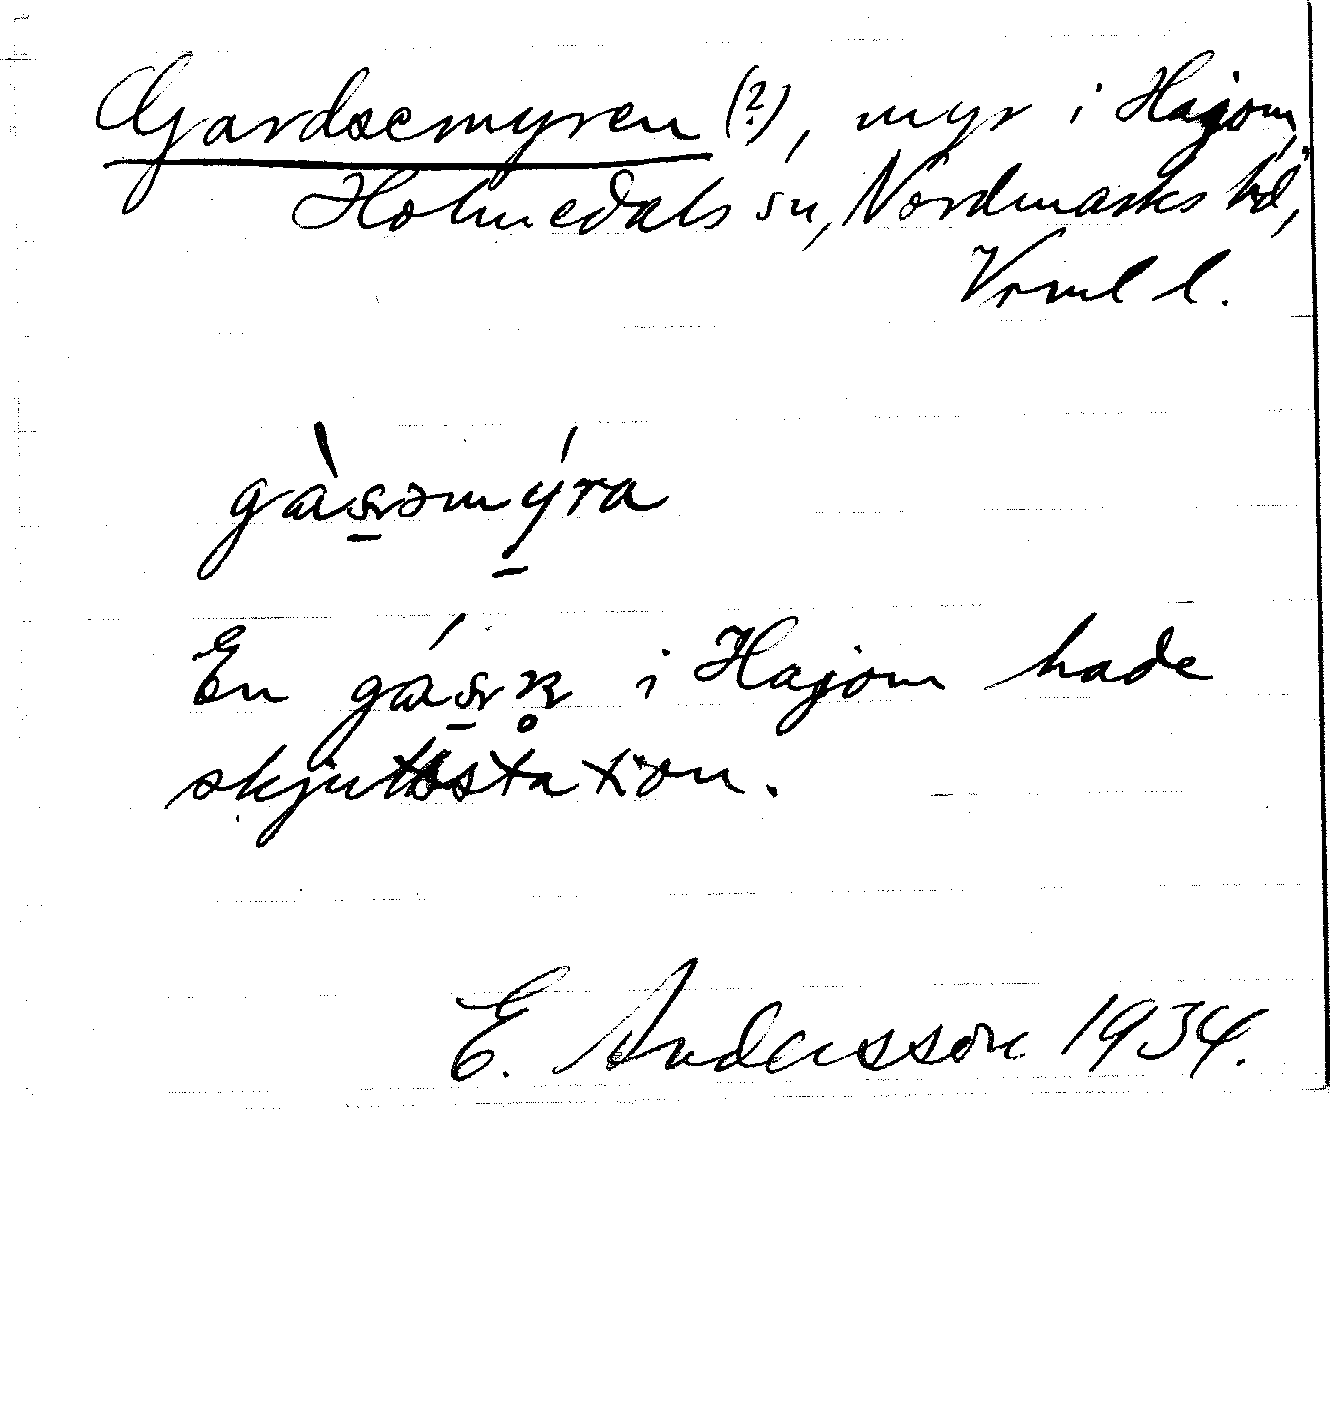 Gardsemyren (?), myr i Hajom,
Holmedals sn, Nordmarks hd,
Vrml l.
gàsəmýra
En gásṛ i Hajom hade
skjutsstation.
E. Andersson 1934.